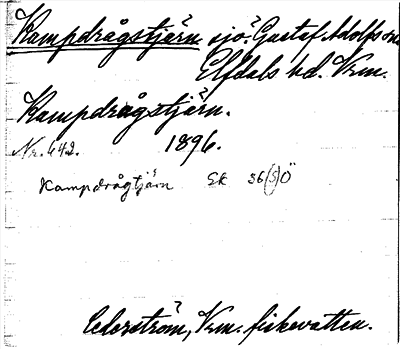 Kampdrågstjärn sjö? Gustaf Adolfs sn.
Elfdals hd. Vrm.
Kampdrågstjärn.
Nr. 642. 1896.
Kampdrågtjärn EK 36(S)Ö
Cederström, Vrm. fiskevatten.